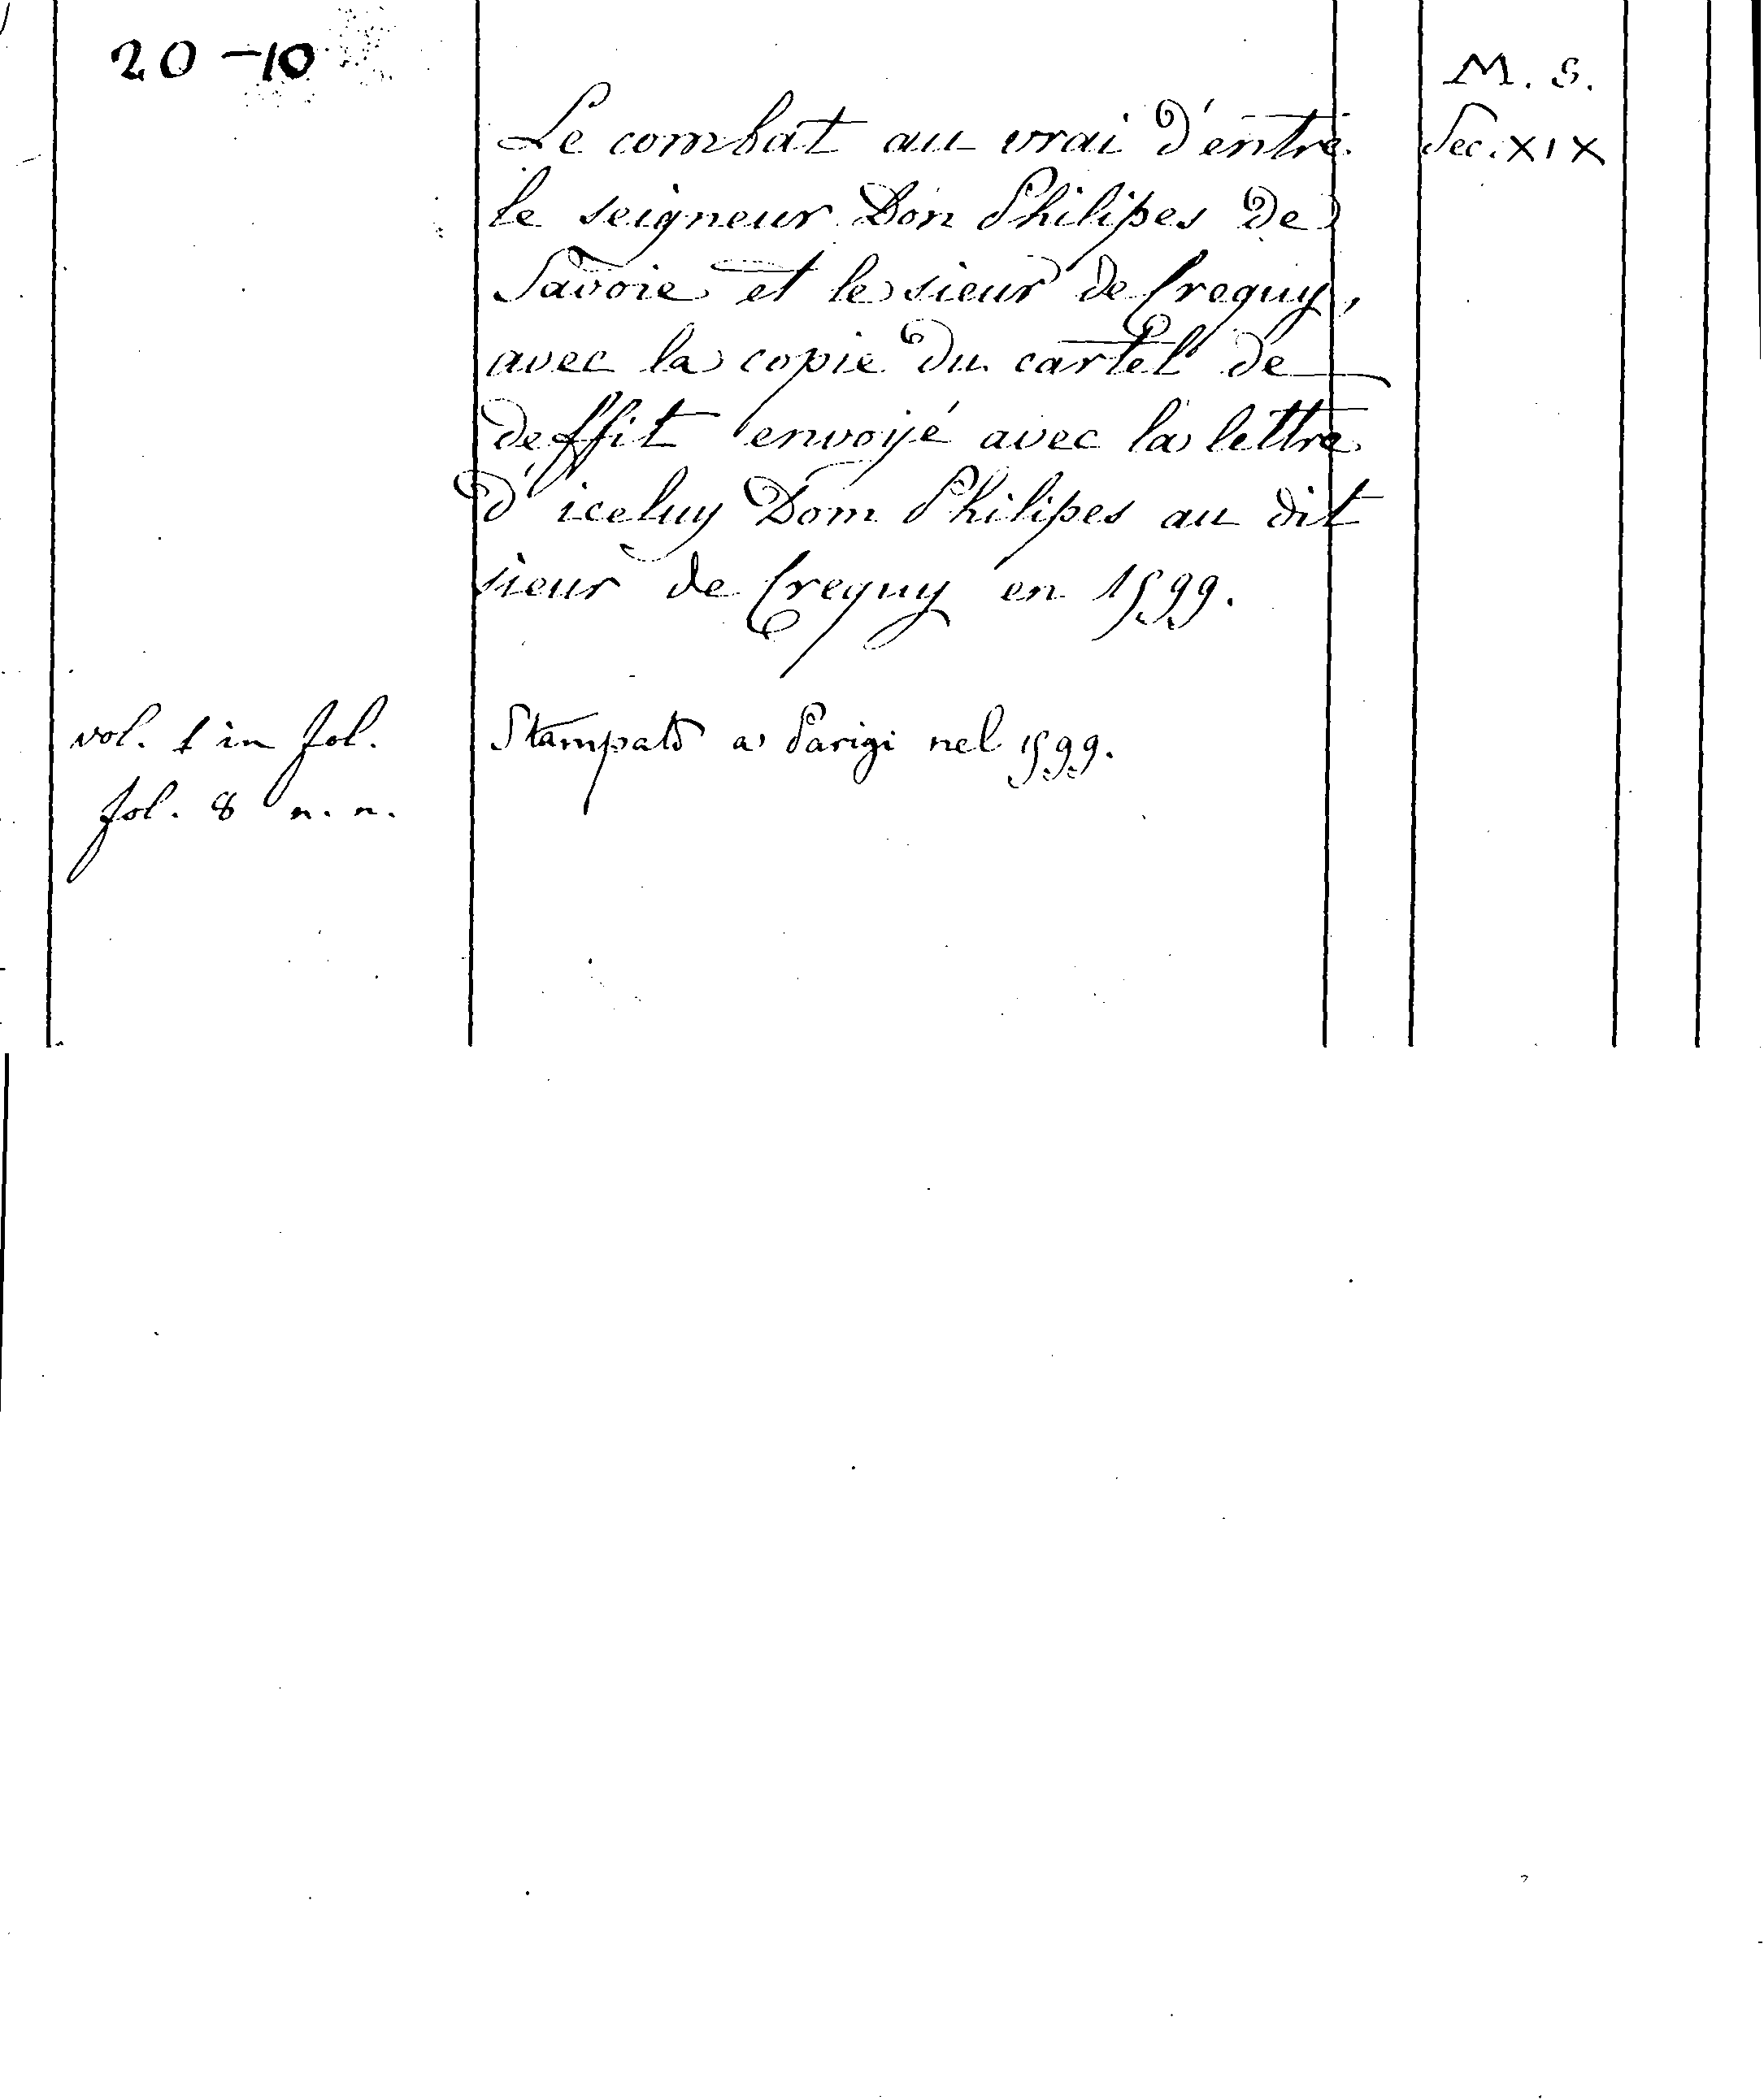 20-10
M. S.
Sec. XIX
Le combat au vrai d'entre
le seigneur Don Philipes de
Savoie et le sieur de Crequy,
avec la copie du cartel de
deffit envoyé avec la lettre
d'iceluy Dom Philipes au dit
sieur de Crequy en 1599.
vol. 1 in fol.
Stampato a Parigi nel 1599.
fol. 8 n. n.